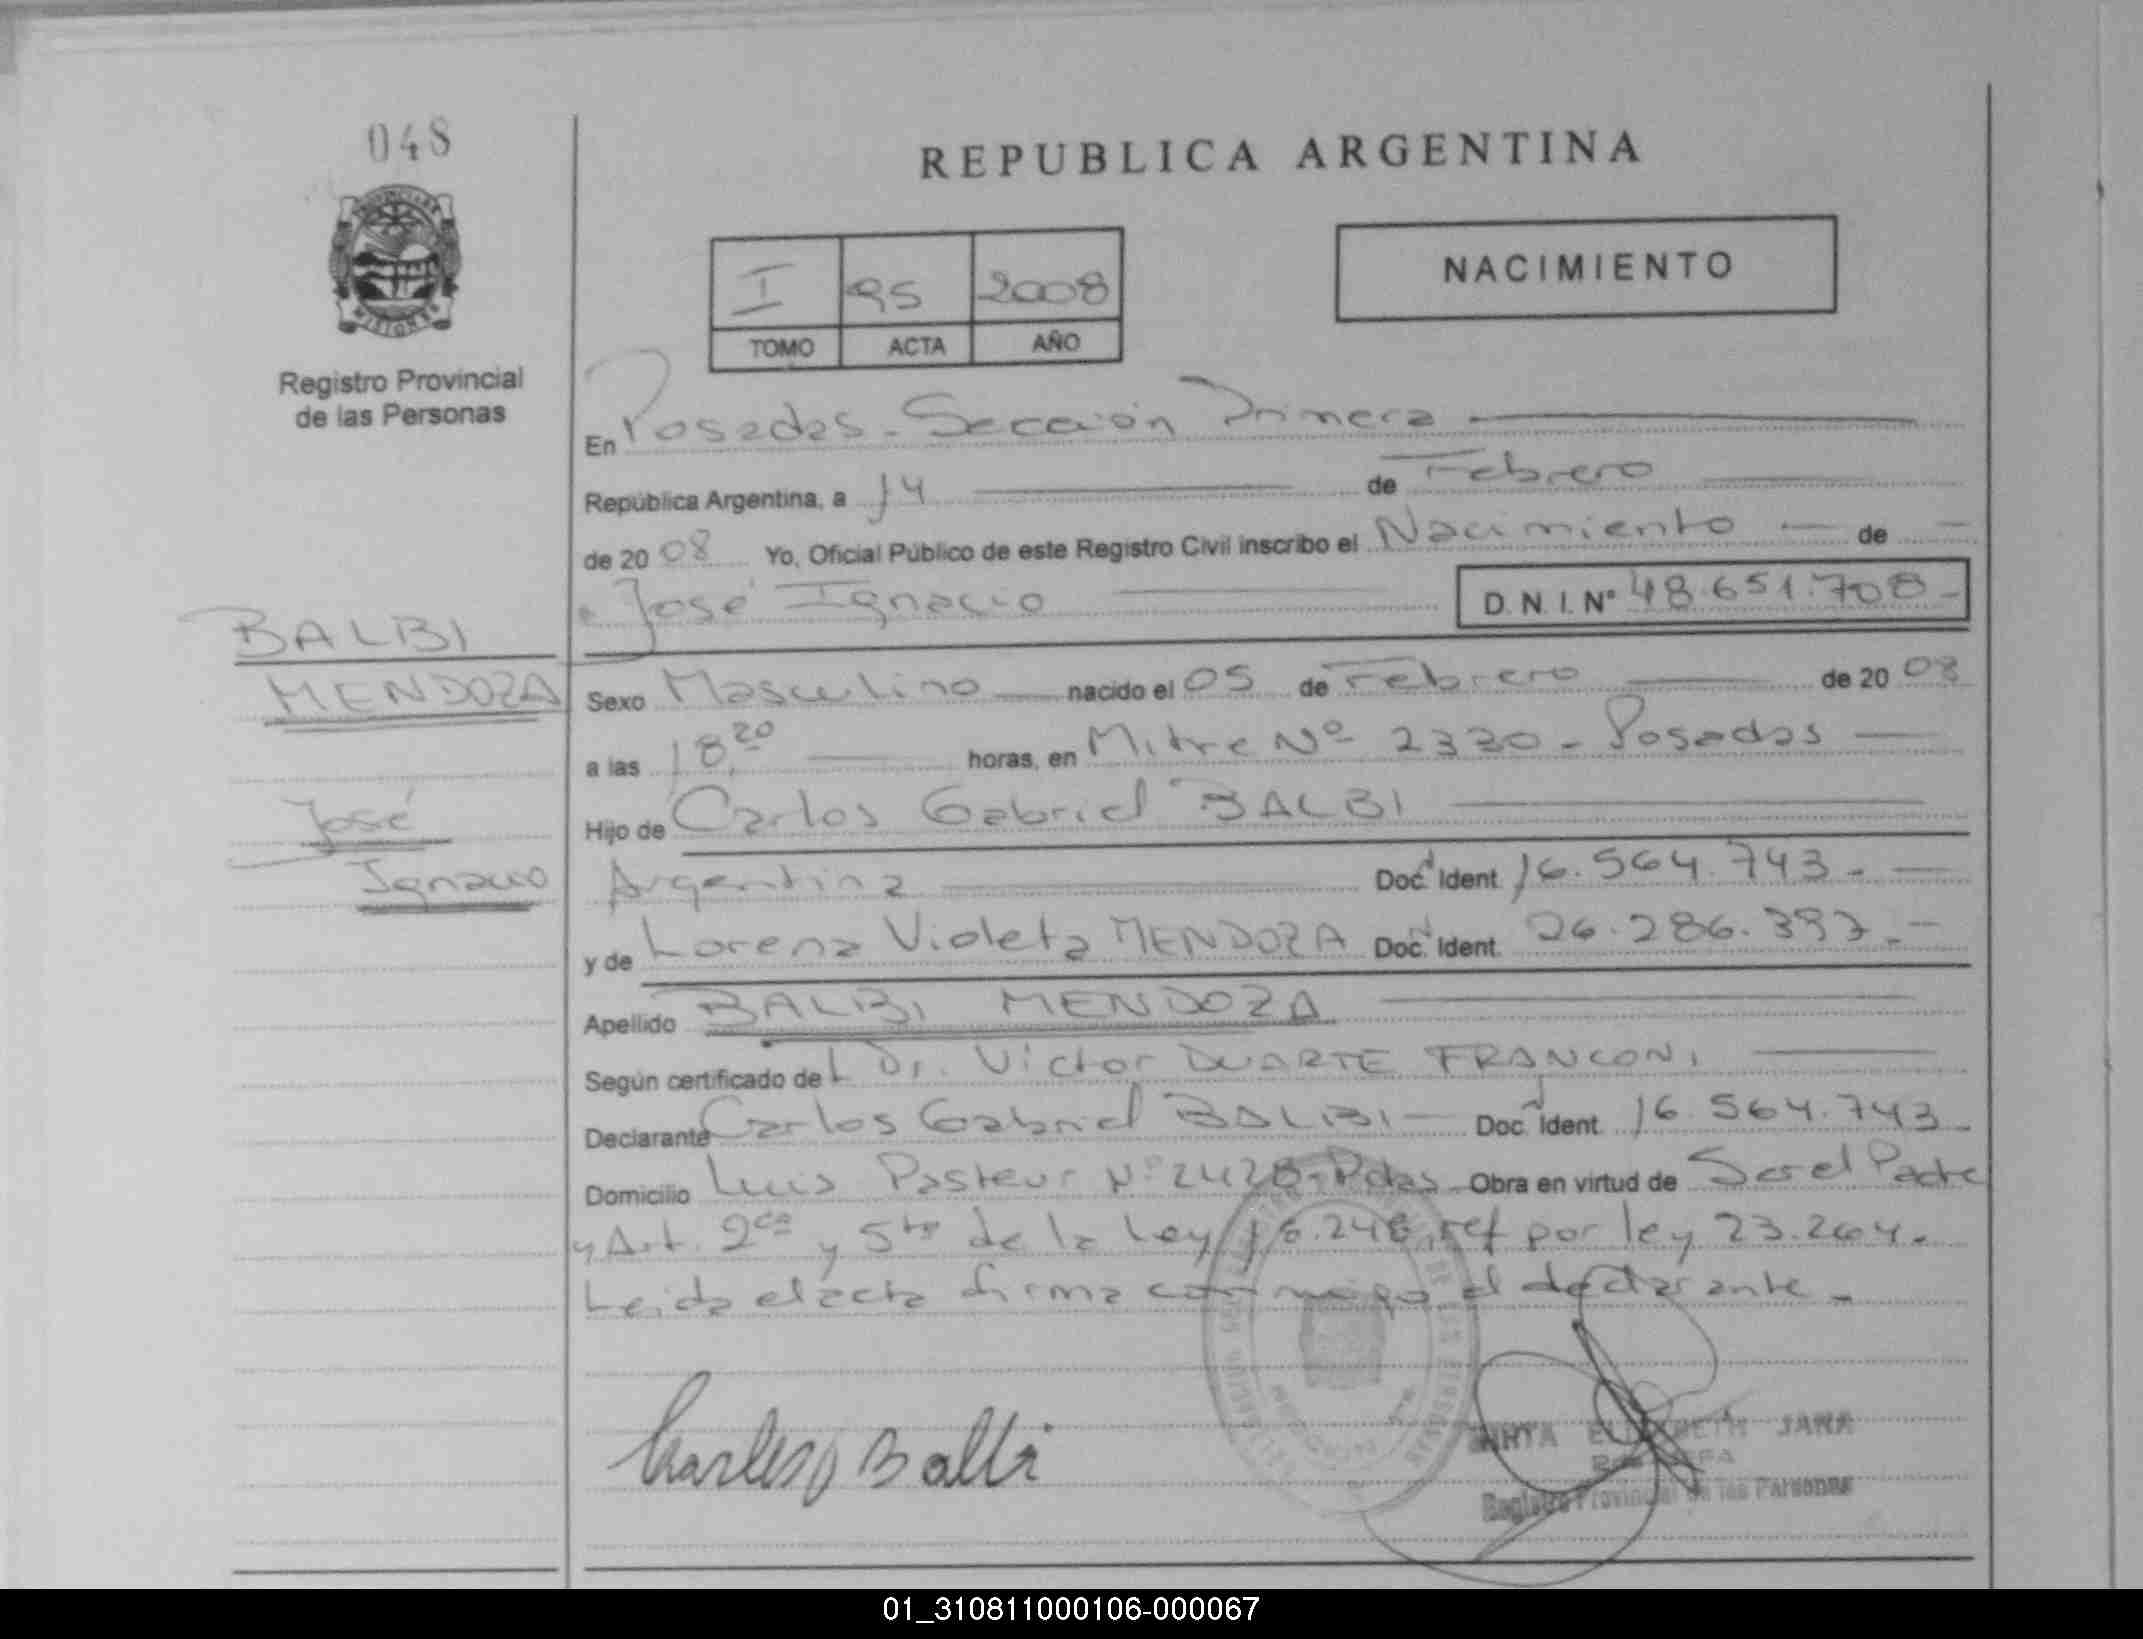 048
REPUBLICA ARGENTINA
PROVINCIA DE
MISIONES
Registro Provincial
de las Personas
I 95 2008
TOMO ACTA AÑO
NACIMIENTO
En Posadas - Sección Primera
República Argentina, a 14 de Febrero
de 2008 Yo, Oficial Público de este Registro Civil inscribo el Nacimiento de
José Ignacio D.N.I. Nº 48.651.708-
BALBI
MENDOZA
José
Ignacio
Sexo Masculino nacido el 05 de Febrero de 2008
a las 18,20 horas, en Mitre Nº 2330 - Posadas
Hijo de Carlos Gabriel BALBI
Argentina Doc. Ident. 16.564.743.-
y de Lorena Violeta MENDOZA Doc. Ident. 26.286.397.-
Apellido BALBI MENDOZA
Según certificado del Dr. Victor DUARTE FRANCONI
Declarante Carlos Gabriel BALBI Doc. Ident. 16.564.743.
Domicilio Luis Pasteur Nº 2428-Pdas. Obra en virtud de Ser el Padre
y Art. 2do y 5to de la Ley 18.248 ref por ley 23.264.
Leida el acta firma conmigo el declarante.-
Carlos Balbi
JARA
Registro Provincial de las Personas
01_310811000106-000067